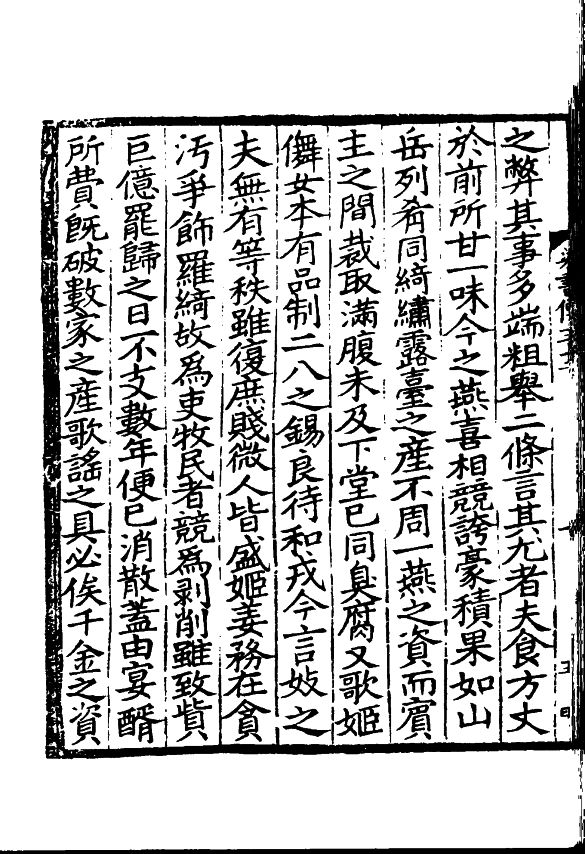 之弊其事多端粗舉二條言其尤者夫食方丈
於前所甘一味今之燕喜相競誇豪積果如山
岳列肴同綺繡露臺之產不周一燕之資而賓
主之間裁取滿腹未及下堂已同臭腐又歌姬
儛女本有品制二八之錫良待和戎今言妓之
夫無有等秩雖復庶賤微人皆盛姬姜務在貪
汚爭飾羅綺故爲吏牧民者競爲剥削雖致貲
巨億罷歸之日不支數年便已消散蓋由宴醑
所費旣破數家之產歌謠之具必俟千金之資